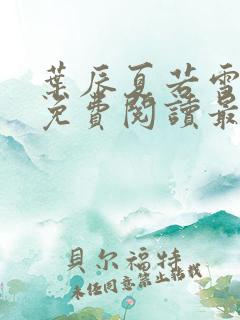 葉辰夏若雪
免費閱讀最
貝尔福特
未经同意禁止转载